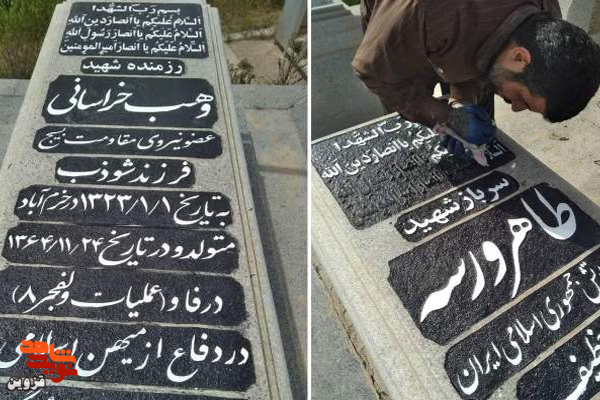 بسم رب الشهدا
السلام علیکم یا انصار دین الله
السلام علیکم یا انصار رسول الله
السلام علیکم یا انصار امیرالمومنین
رزمنده شهید
وهب خراسانی
عضو نیروی مقاومت بسیج
فرزند شوذب
به تاریخ ۱۳۲۳/۱/۱ در خرم آباد
متولد و در تاریخ ۱۳۶۴/۱۱/۲۴
در فاو (عملیات والفجر ۸)
در دفاع از میهن اسلامی
بسم رب الشهدا
السلام علیکم یا انصار دین الله
سرباز شهید
طاهر ورسه
ارتش جمهوری اسلامی ایران
قزوین